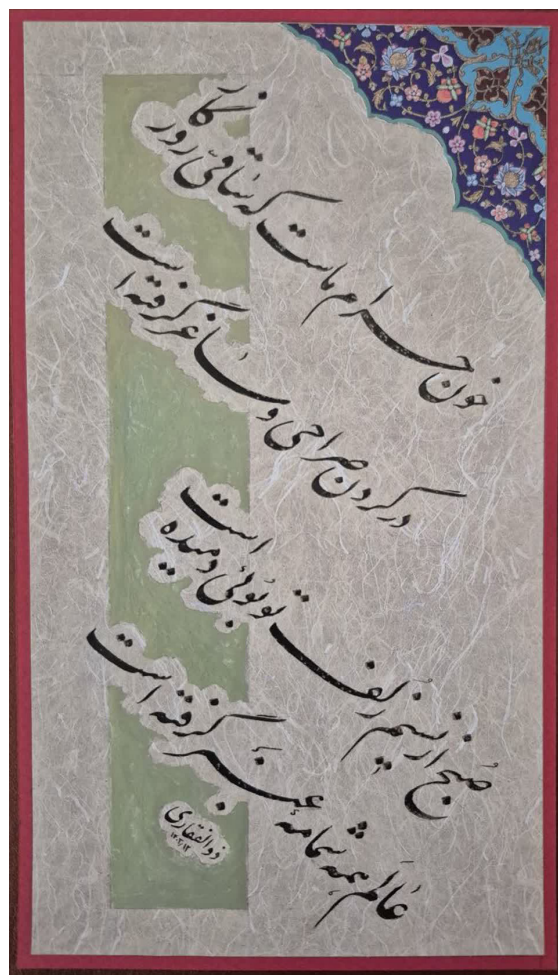 خون حرام ماست که ساقئ روزگار
در گردن صراحی و ساغر گرفته است
صبح از نسیم زلف تو بوئی دمیده است
عالم همه شمامهٔ عنبر گرفته است
ذوالفقاری